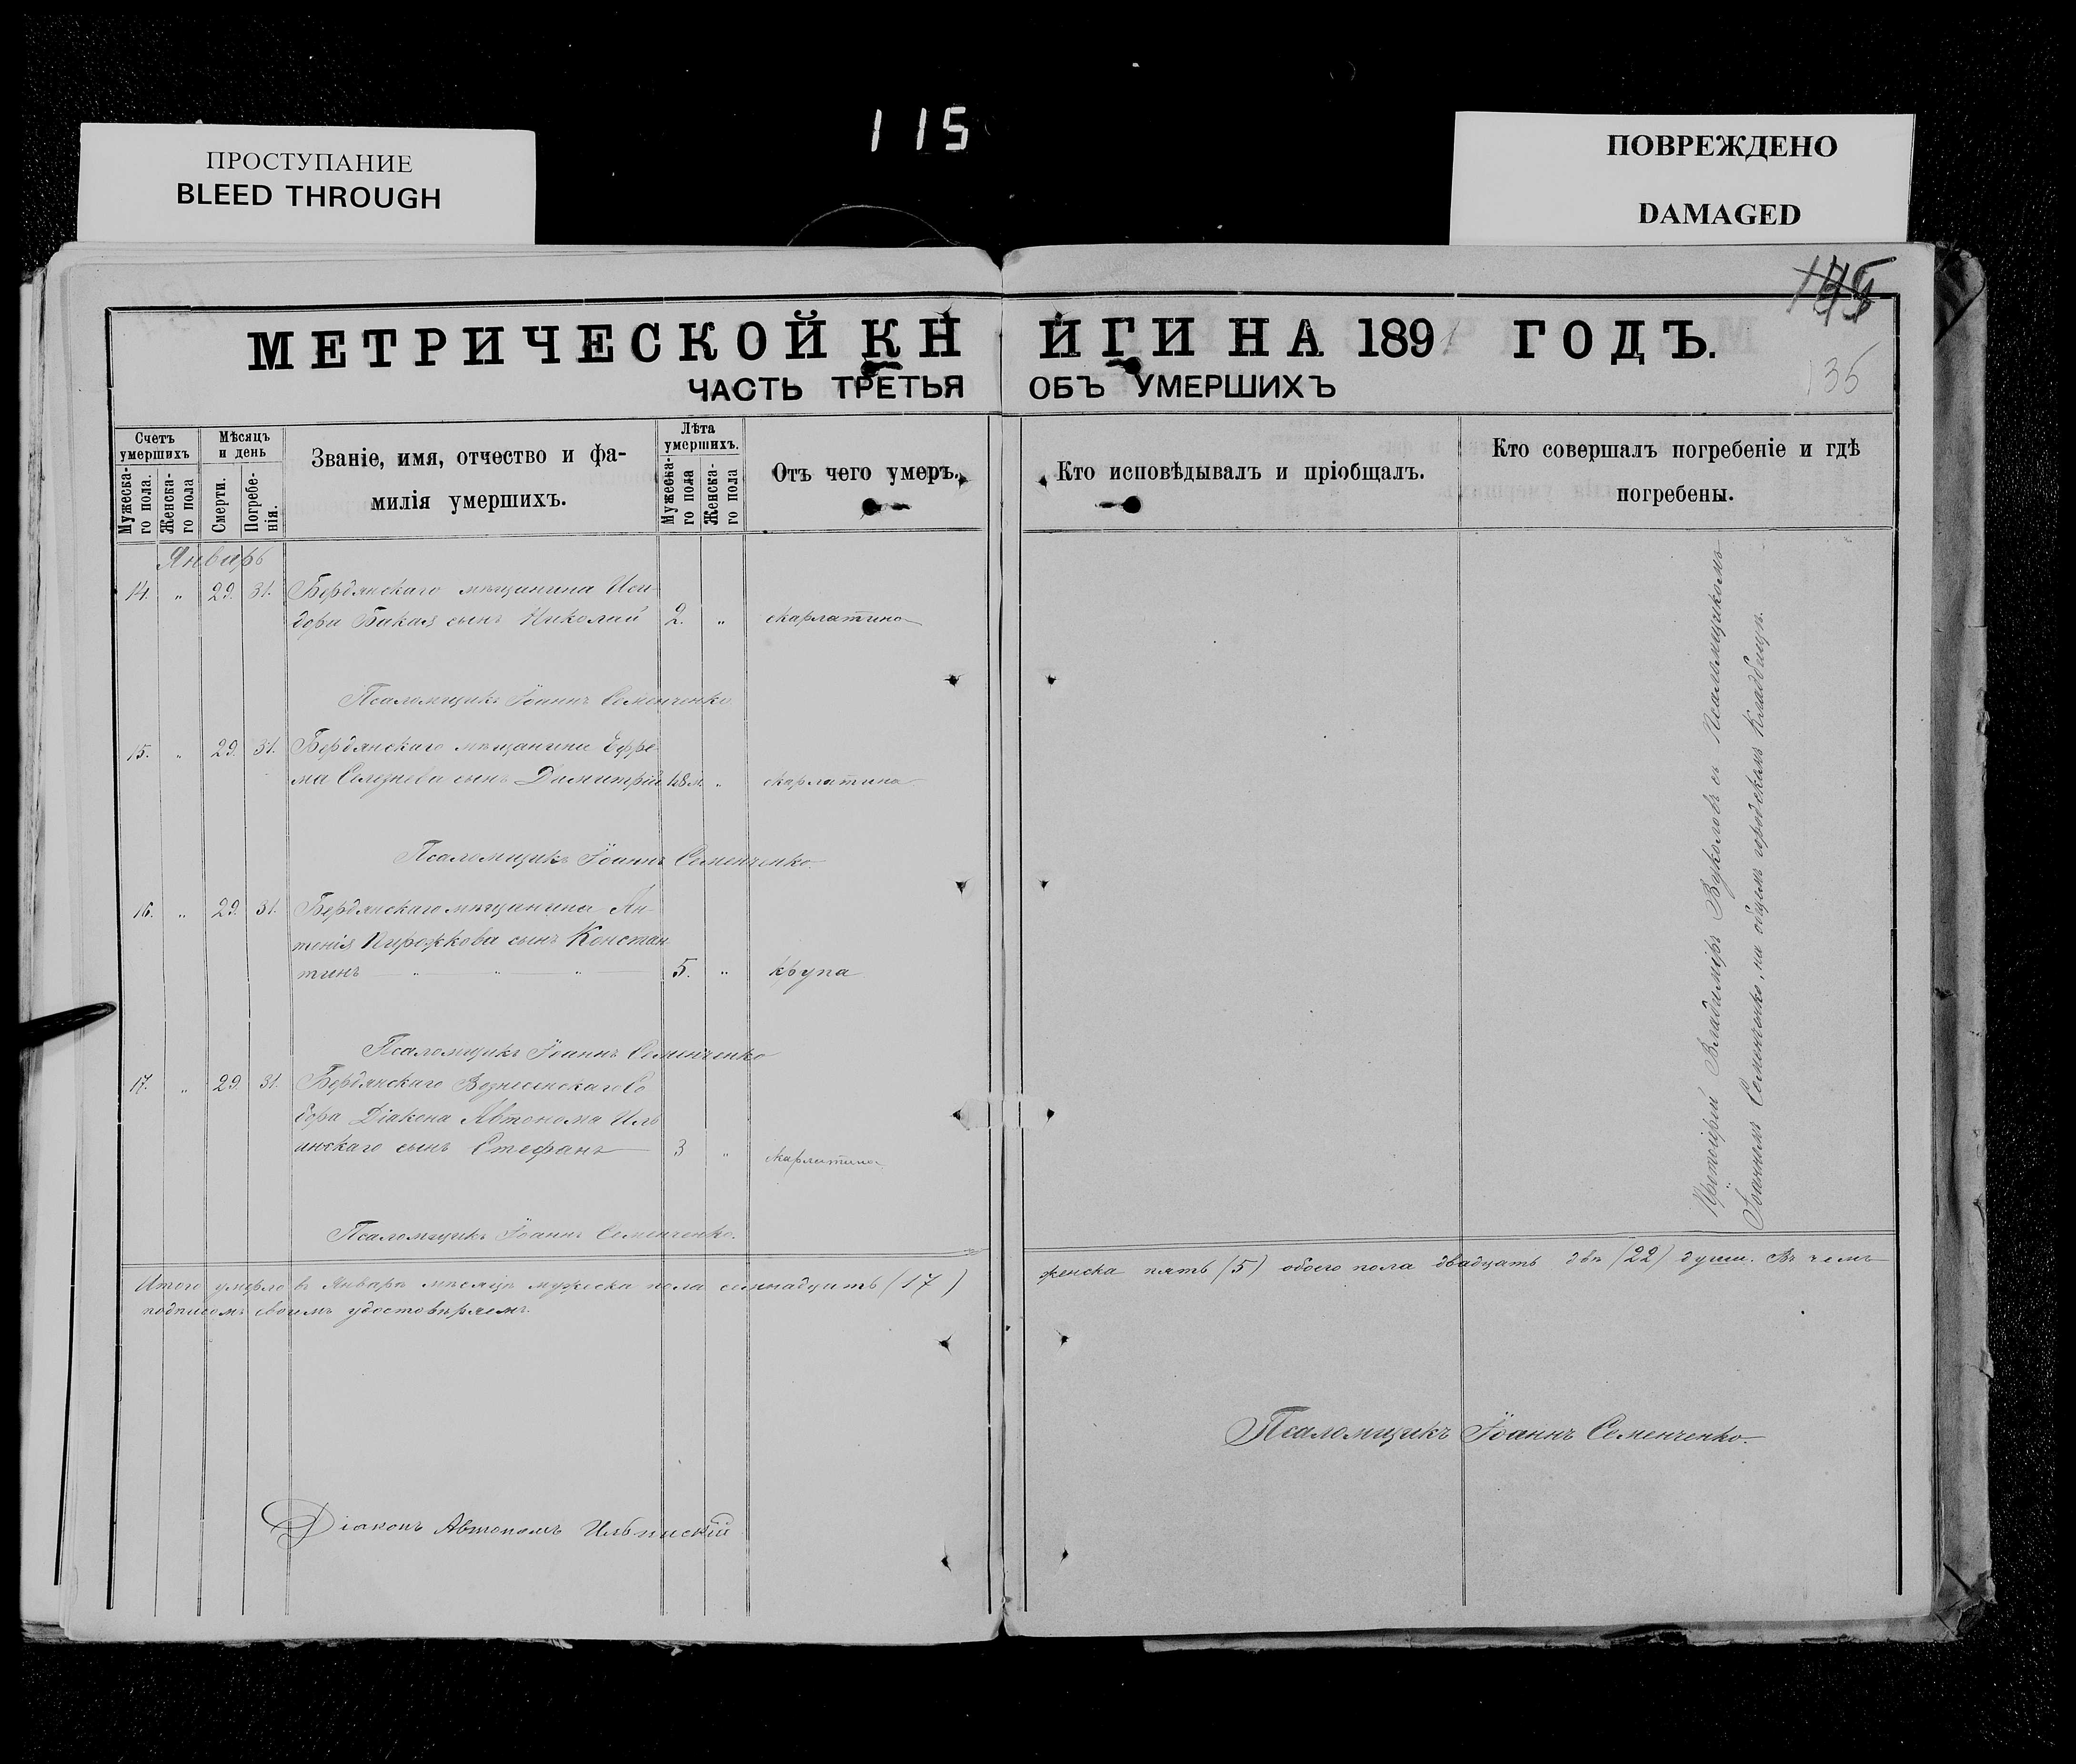 115
ПРОСТУПАНИЕ
BLEED THROUGH
ПОВРЕЖДЕНО
DAMAGED
МЕТРИЧЕСКОЙ КН
ИГИ НА 1891 ГОДЪ.
135
ЧАСТЬ ТРЕТЬЯ
ОБЪ УМЕРШИХЪ
Счетъ умершихъ
Мужеска-го пола.
Женска-го пола
Мѣсяцъ и день
Смерти.
Погребе-нія.
Званіе, имя, отчество и фа-
милія умершихъ.
Лѣта умершихъ.
Мужеска-го пола
Женска-го пола
Отъ чего умеръ.
Кто исповѣдывалъ и пріобщалъ.
Кто совершалъ погребеніе и гдѣ
погребены.
Январь
14. " 29. 31. Бердянскаго мѣщанина Иси-
дора Бакая сынъ Николай 2. " скарлатина
Псаломщикъ Іоаннъ Семенченко
15. " 29. 31. Бердянскаго мѣщанина Ефре-
ма Селезнева сынъ Димитрій " скарлатина
Псаломщикъ Іоаннъ Семенченко.
16. " 29. 31. Бердянскаго мѣщанина Ан-
тонія Пирожкова сынъ Констан
тинъ " " " 5. " крупа
Псаломщикъ Іоаннъ Семенченко
17. " 29. 31. Бердянскаго Вознесенскаго Со
бора Діакона Автонома Иль
инскаго сынъ Стефанъ 3 " скарлатина
Псаломщикъ Іоаннъ Семенченко.
Протоіерей Владиміръ Вуколовъ съ Псаломщикомъ
Іоанномъ Семенченко, на общемъ городскомъ кладбищѣ.
Итого умерло въ Январѣ мѣсяцѣ мужеска пола семнадцать (17)
женска пять (5) обоего пола двадцать двѣ (22) души. Въ чемъ
подписомъ своимъ удостовѣряемъ.
Псаломщикъ Іоаннъ Семенченко.
Діаконъ Автономъ Ильинскій